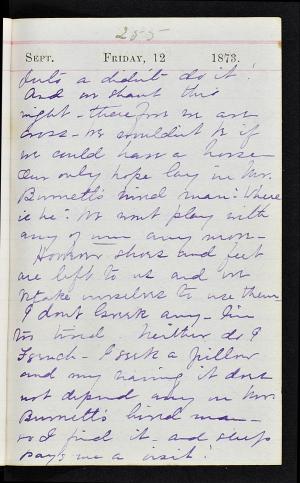 255
SEPT. FRIDAY, 12 1873.
puts a didn't do it!
And we shant this
night – therefore we are
cross – we wouldn't be if
we could have a horse –
Our only hope lay in Mr.
Burnett's hired man: Where
is he? We wont play with
any of any more –
However shoes and feet
are left to us and we
betake ourselves to use them
I don't Greek any – I'm
too tired. Neither do I
French – I seek a pillow
and my having it does
not depend upon Mr.
Burnett's hired man –
so I find it – and sleep
pays me a visit!